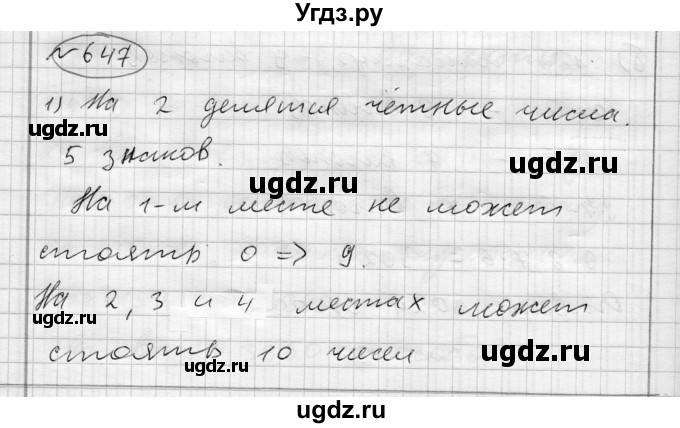 Угдз.ру
№647
1) На 2 делятся чётные числа.
ugdz.ru
5 знаков.
ugdz.ru
ugdz.ru
На 1-м месте не может
стоять 0 => 9.
ugdz.ru
На 2, 3 и 4 местах может
ugdz.ru
стоять 10 чисел
ugdz.ru
ugdz.ru
ugdz.ru